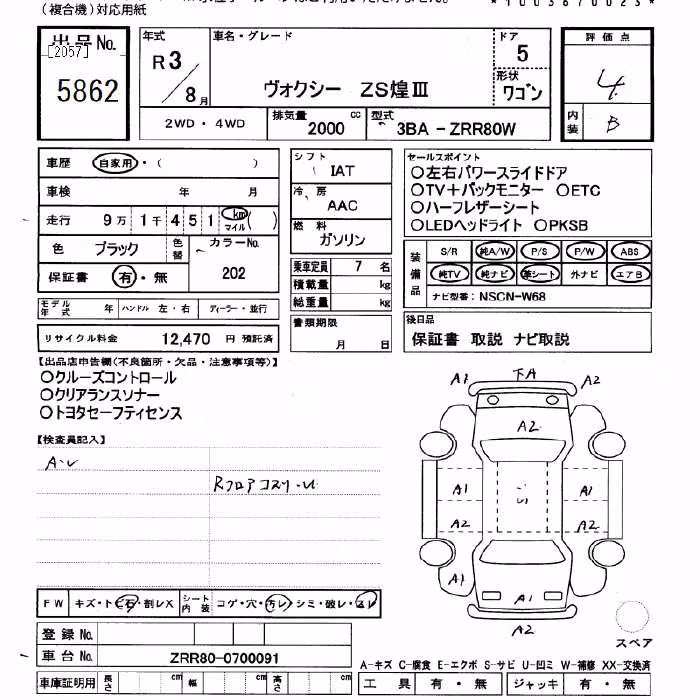 (複合機)対応用紙
*1003670023*
出品No.
[2057]
5862
年式
R3/8月
車名・グレード
ヴォクシー ZS煌Ⅲ
ドア
5
形状
ワゴン
評価点
4
内装
B
2WD・4WD
排気量
2000 cc
型式
3BA-ZRR80W
車歴 自家用・( )
車検 年 月
走行 9万1千451 km マイル ( )
色 ブラック
色替
カラーNo.
202
保証書 有・無
シフト
IAT
冷房
AAC
燃料
ガソリン
乗車定員 7 名
積載量 kg
総重量 kg
書類期限
月 日
セールスポイント
○左右パワースライドドア
○TV+バックモニター ○ETC
○ハーフレザーシート
○LEDヘッドライト ○PKSB
装備品
S/R 純A/W P/S P/W ABS
純TV 純ナビ 革シート 外ナビ エアB
ナビ型番: NSCN-W68
後日品
保証書 取説 ナビ取説
モデル年式 年 ハンドル 左・右 ディーラー・並行
リサイクル料金 12,470 円 預託済
【出品店申告欄(不良箇所・欠品・注意事項等)】
○クルーズコントロール
○クリアランスソナー
○トヨタセーフティセンス
【検査員記入】
Rフロアコスリ
A1 下A A2
A2
A1 A1
A2 A2
A1 A1
A2
スペア
FW キズ・トビ石・割レX
シート内装 コゲ・穴・汚レ・シミ・破レ・スレ
登録No.
車台No. ZRR80-0700091
車庫証明用 長さ cm 幅 cm 高さ cm
A-キズ C-腐食 E-エクボ S-サビ U-凹ミ W-補修 XX-交換済
工具 有・無 ジャッキ 有・無